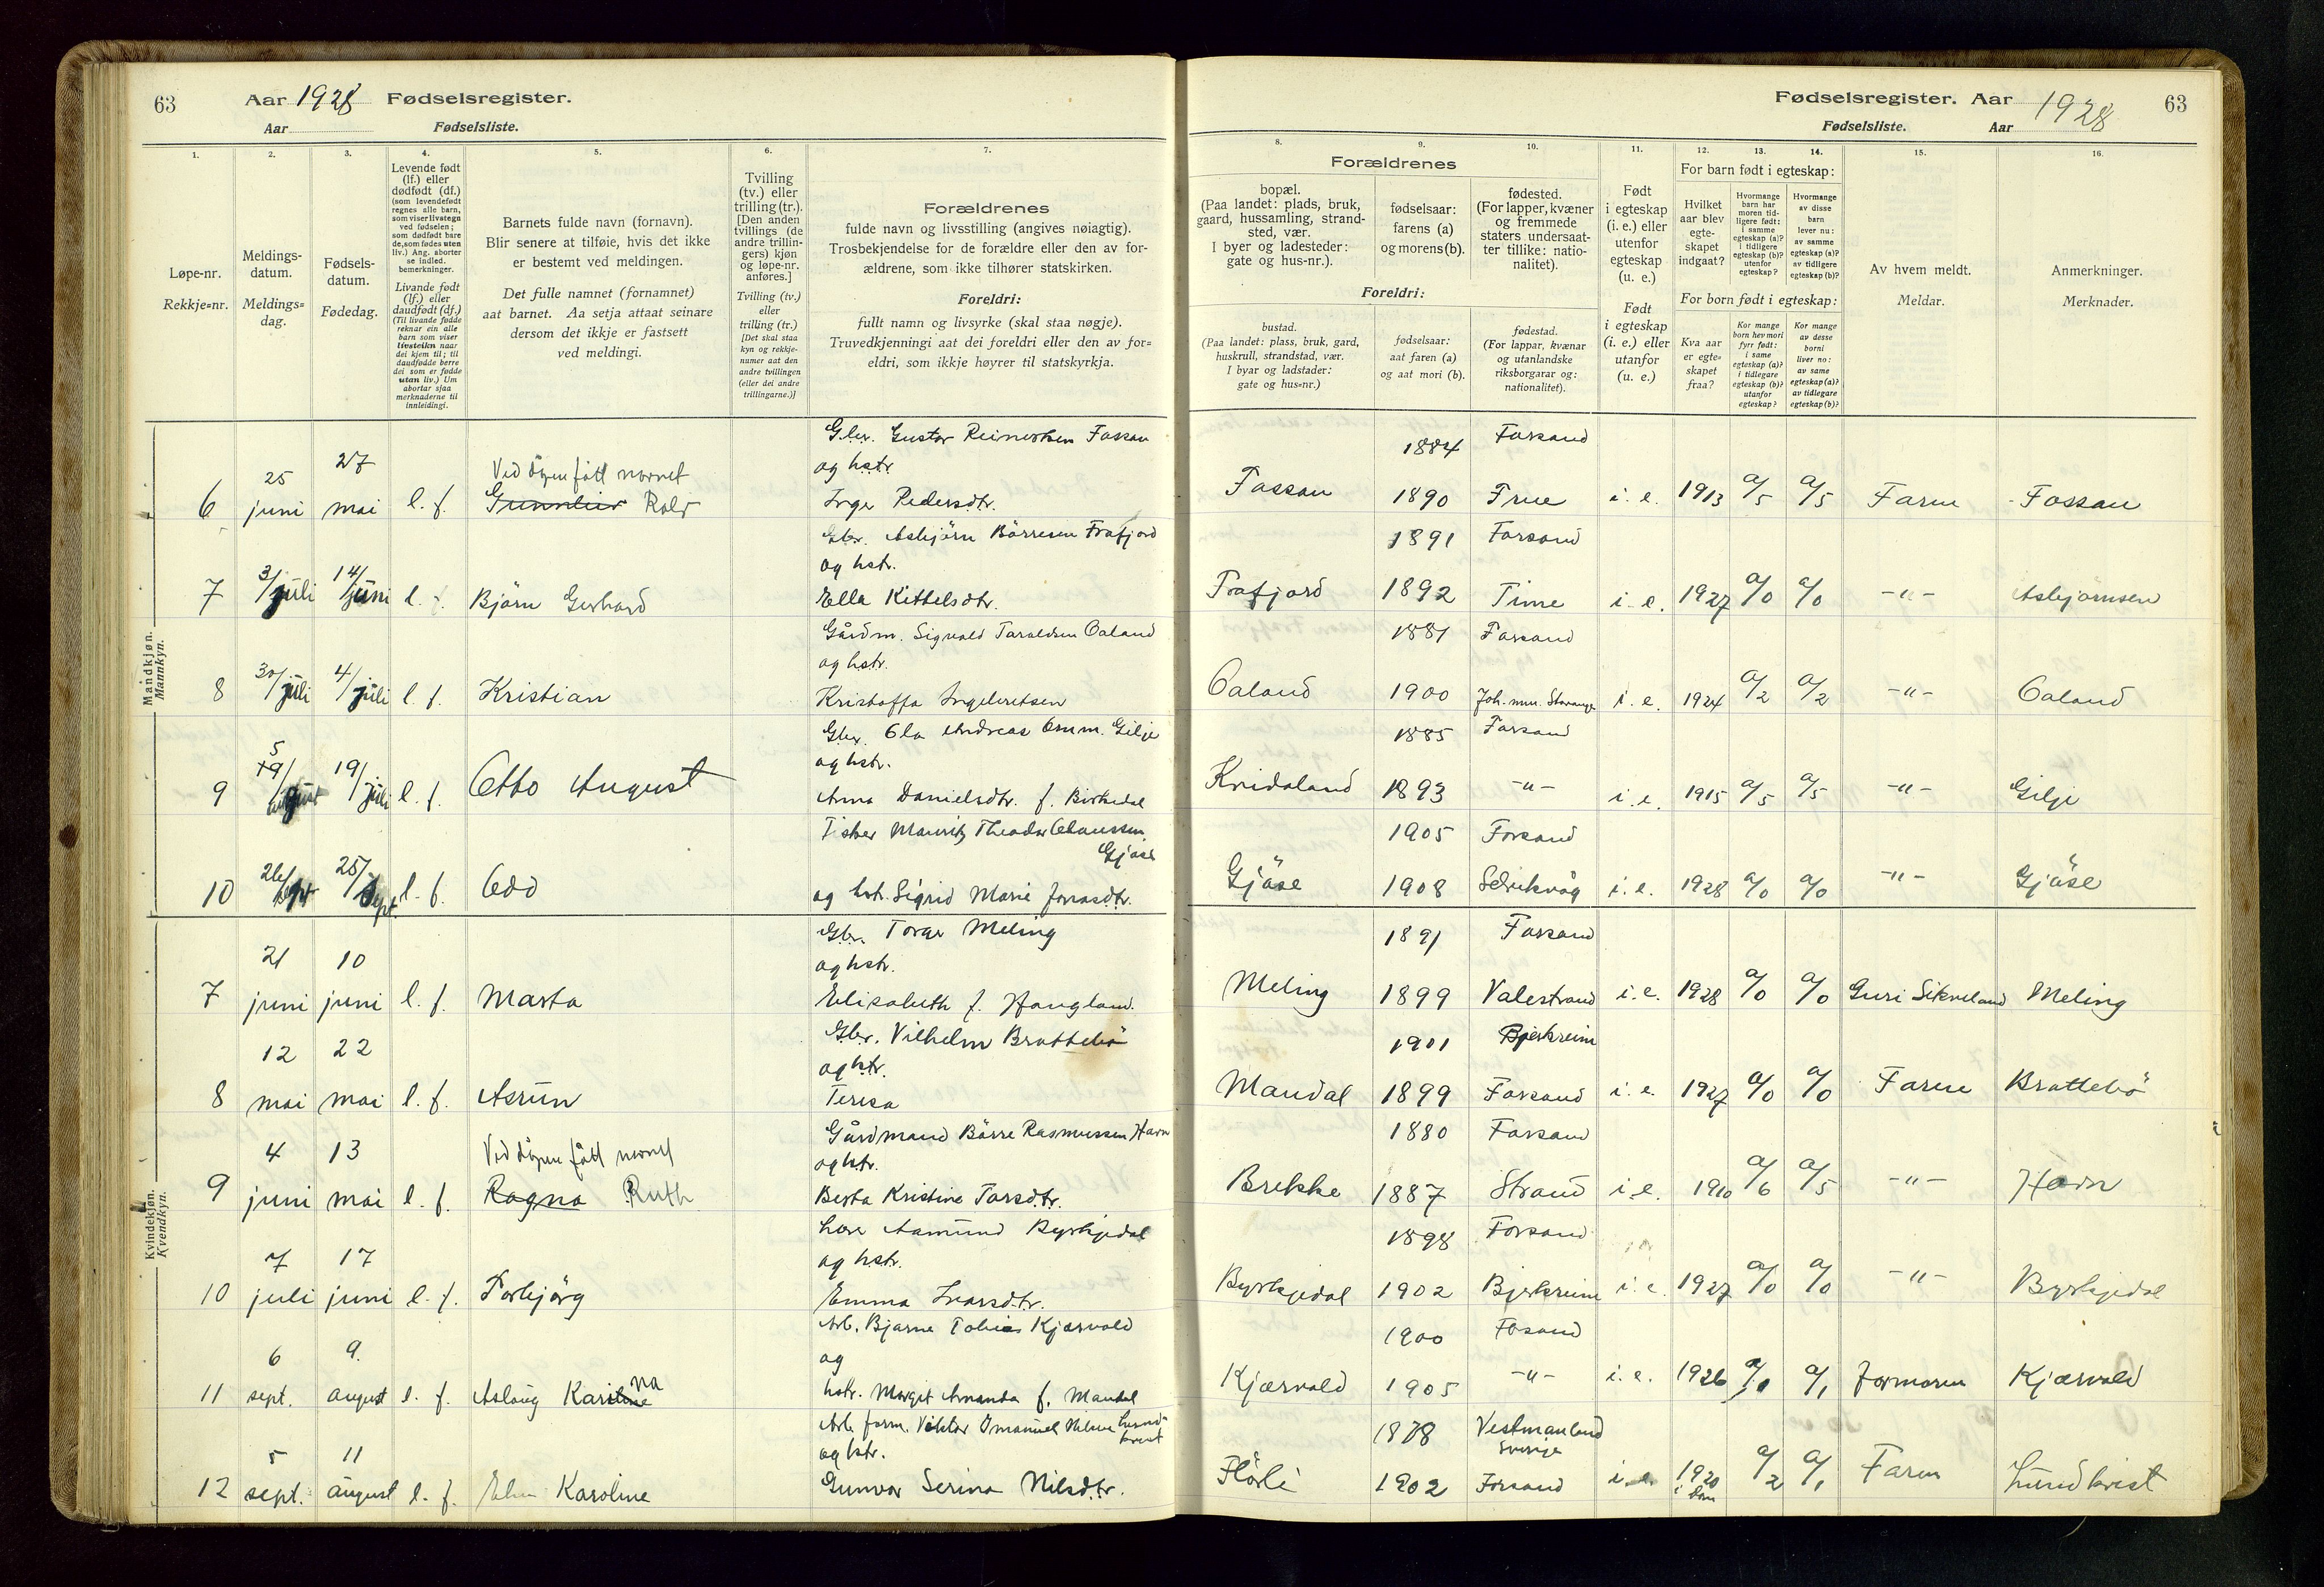 63 Aar 1928 Fødselsregister.
Aar Fødselsliste.
Fødselsregister. Aar 1928 63
Fødselsliste. Aar
1.
Løpe-nr.
Rekkje=nr.
2.
Meldings-
datum.
Meldings=
dag.
3.
Fødsels-
datum.
Fødedag.
4.
Levende født
(lf.) eller
dødfødt (df.)
(som levendefødt
regnes alle barn,
som viser livstegn
ved fødselen;
som dødfødt bare
de, som fødes uten
liv.) Ang. aborter
se indled.
bemerkninger.
Livande født
(lf.) eller
daudfødt (df.)
(Til livande fødde
reknar ein alle
barn som viser
livsteikn naar
dei kjem til; til
daudfødde berre
dei som er fødde
utan liv.) Um
abortar sjaa
merknaderne til
innleidingi.
5.
Barnets fulde navn (fornavn).
Blir senere at tilføie, hvis det ikke
er bestemt ved meldingen.
Det fulle namnet (fornamnet)
aat barnet. Aa setja attaat seinare
dersom det ikkje er fastsett
ved meldingi.
6.
Tvilling
(tv.) eller
trilling (tr.).
[Den anden
tvillings (de
andre trillin-
gers) kjøn
og løpe-nr.
anføres.]
Tvilling (tv.)
eller
trilling (tr.)
[Det skal staa
kyn og rekkje-
numer aat den
andre tvillingen
(eller dei andre
trillingarne.)]
7.
Forældrenes
fulde navn og livsstilling (angives nøiagtig).
Trosbekjendelse for de forældre eller den av for-
ældrene, som ikke tilhører statskirken.
Foreldri:
fullt namn og livsyrke (skal staa nøgje).
Truvedkjenningi aat dei foreldri eller den av for=
eldri, som ikkje høyrer til statskyrkja.
8. 9. 10.
Forældrenes
bopæl.
(Paa landet: plads, bruk,
gaard, hussamling, strand-
sted, vær.
I byer og ladesteder:
gate og hus-nr.).
fødselsaar:
farens (a)
og morens (b).
fødested.
(For lapper, kvæner
og fremmede
staters undersaat-
ter tillike: natio-
nalitet).
Foreldri:
bustad.
(Paa landet: plass, bruk, gard,
huskrull, strandstad, vær.
I byar og ladstader:
gate og hus=nr.)
fødselsaar:
aat faren (a)
og aat mori (b).
fødestad.
(For lappar, kvænar
og utanlandske
riksborgarar og:
nationalitet).
11.
Født
i egteskap
(i. e.) eller
utenfor
egteskap
(u. e.)
Født
i egteskap
(i. e.) eller
utanfor
(u. e.)
12. 13. 14.
For barn født i egteskap:
Hvilket
aar blev
egte-
skapet
indgaat?
Hvormange
barn har
moren tid-
ligere født:
i samme
egteskap (a)?
i tidligere
egteskap (b)?
utenfor
egteskap?
Hvormange
av disse
barn
lever nu:
av samme
egteskap (a)?
av tidligere
egteskap (b)?
For born født i egteskap:
Kva aar
er egte-
skapet
fraa?
Kor mange
born hev mori
fyrr født:
i same
egteskap (a)?
i tidlegare
egteskap (b)?
utanfor
egteskap?
Kor mange
av desse
borni
liver no:
av same
egteskap (a)?
av tidlegare
egteskap (b)?
15.
Av hvem meldt.
Meldar.
16.
Anmerkninger.
Merknader.
Mandkjøn.
Mannkyn.
Gbr. Gustav Reinertsen Fossan 1884 Forsand
25 27 Ved dåpen fått navnet og hstr.
6 juni mai l. f. Gunnleiv Rolv Inger Pedersdtr. Fossan 1890 Time i. e. 1913 a/5 a/5 Faren Fossan
Gbr. Asbjörn Börresen Frafjord 1891 Forsand
og hstr.
7 3/juli 14/juni l. f. Björn Gerhard Ella Kittelsdtr. Frafjord 1892 Time i. e. 1927 a/0 a/0 -"- Asbjörnsen
Gårdm. Sigvald Taraldsen Oaland 1881 Forsand
og hstr.
8 30/juli 4/juli l. f. Kristian Kristoffa Ingebretsen Oaland 1900 Joh. mn. Stavanger i. e. 1924 a/2 a/2 -"- Oaland
Gbr. Ola Andreas Omm. Gilje 1885 Forsand
og hstr.
9 5/august 19/juli l. f. Otto August Anna Danielsdtr. f. Birkedal Kvidaland 1893 -"- i. e. 1915 a/5 a/5 -"- Gilje
Fisker Mauritz Theodor Claussen 1905 Forsand
Gjöse
10 26/sept 25/sept. l. f. Odd og hstr. Sigrid Marie Jonasdtr. Gjöse 1908 i. e. 1928 a/0 a/0 -"- Gjöse
Kvindekjøn.
Kvendkyn.
Gbr. Torger Meling 1891 Forsand
21 10 og hstr.
7 juni juni l. f. Marta Elisabeth f. Haugland. Meling 1899 Valestrand i. e. 1928 a/0 a/0 Guri Sikveland Meling
12 22 Gbr. Vilhelm Brattebö 1901 Bjerkreim
og hstr.
8 mai mai l. f. Asrun Teresa Mandal 1899 Forsand i. e. 1927 a/0 a/0 Faren Brattebö
Gårdmand Börre Rasmussen Havn 1880 Forsand
4 13 Ved dåpen fått navnet og hstr.
9 juni mai l. f. Ragna Ruth Berta Kristine Tarsdtr. Brekke 1887 Strand i. e. 1910 a/6 a/5 -"- Havn
Aamund Byrkjedal 1898 Forsand
7 17 og hstr.
10 juli juni l. f. Torbjörg Emma Ivarsdtr. Byrkjedal 1902 Bjerkreim i. e. 1927 a/0 a/0 -"- Byrkjedal
Arb. Bjarne Tobias Kjærvold 1900 Forsand
6 9. og
11 sept. august l. f. Aslaug Karina hstr. Margit Amanda f. Mandal Kjærvold 1905 -"- i. e. 1926 a/1 a/1 Jormoren Kjærvold
Arb. form. Viktor Emanuel Nilsen Lundkvist 1878 Vestmanland
Sverige
5 11 og hstr.
12 sept. august l. f. Karoline Gunvor Serina Nilsdtr. Flörli 1902 Forsand i. e. 1920 a/2 a/1 Faren Lundkvist